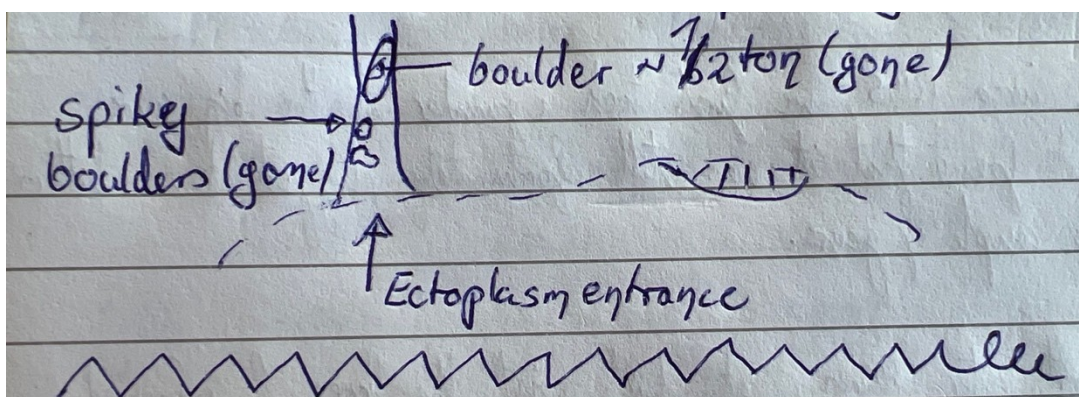 boulder ~ 1/2 ton (gone)
spikey
boulders (gone)
Ectoplasm entrance